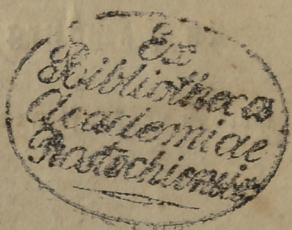 Ex
Bibliotheca
Academiae
Rostochiensi